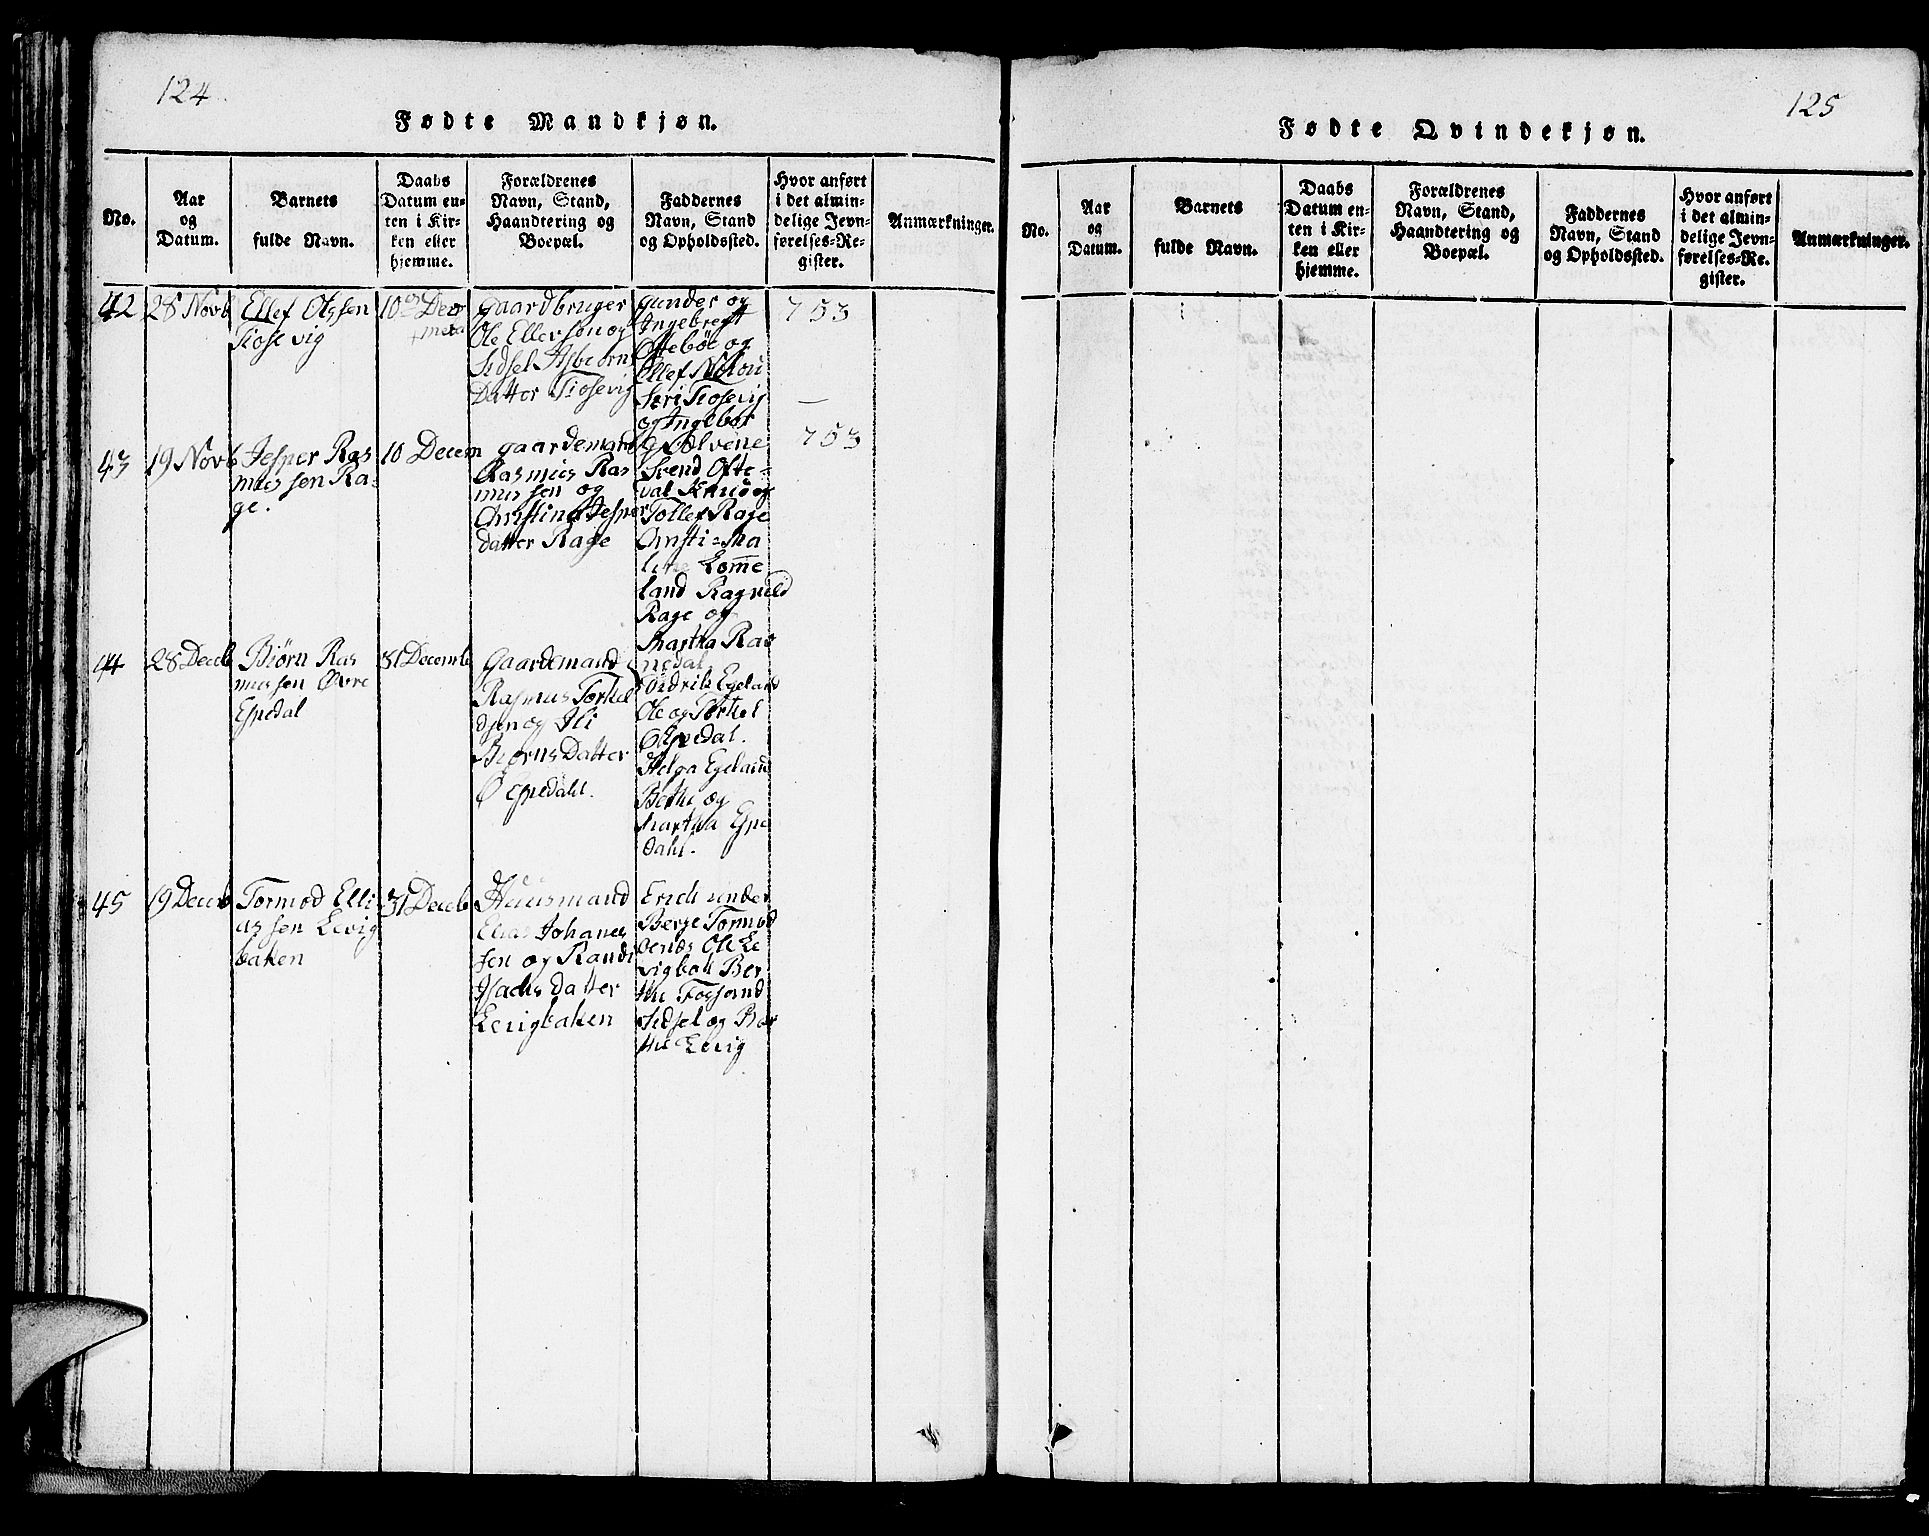 124
Fødte Mandkjøn.
No.
Aar
og
Datum.
Barnets
fulde Navn.
Daabs
Datum en-
ten i Kir-
ken eller
hjemme.
Forældrenes
Navn, Stand,
Haandtering og
Boepæl.
Faddernes
Navn, Stand
og Opholdssted.
Hvor anført
i det almin-
delige Jevn-
førelses-Re-
gister.
Anmærkninger.
42
28 Novb
Ellef Olssen
Tiosevig
10 Dec
Gaardbruger
Ole Ellefsen og
Sidsel Asbeorns
Datter Tiosevig
Gunder og
Ingebregt
Oftebøe og
Ellef
Siri Tiosevig
og Ingebor
753
43
19 Novb
Jesper Ras
mussen Ra-
ge.
10 Decem
gaardemand
Rasmus Ras
mussen og
Christina Jesper
datter Rage
g Sølvene
Svend Ofte-
val Knud og
Tollef Rage
Christi= Ma
Lomme
land Ragnild
Rage og
Martha Ras
nedal
753
44
28 Decb
Biørn Ras
mussen Øvre
Espedal
31 Decemb
Gaardemand
Rasmus Torkel
dsen og Ili
Biørns Datter
Ø Espedahl.
Didrik Egeland
Ole og Torkel
Ø Espedal.
Helga Egeland
Berthe og
Martha Espe
dahl.
45
19 Decb
Tormod Elli
assen Levig
baken
31 Decb
Huusmand
Elias Johanes
sen og Randi
Isachs Datter
Levigbaken
Erich under
Berge Tormod
Oenæs Ole Le
vigbak Ber
the Fossand
Sidsel og Ber
the Levig
125
Fødte Qvindekjøn.
No.
Aar
og
Datum.
Barnets
fulde Navn.
Daabs
Datum en-
ten i Kir-
ken eller
hjemme.
Forældrenes
Navn, Stand,
Haandtering og
Boepæl.
Faddernes
Navn, Stand
og Opholdssted.
Hvor anført
i det almin-
delige Jevn-
førelses-Re-
gister.
Anmærkninger.